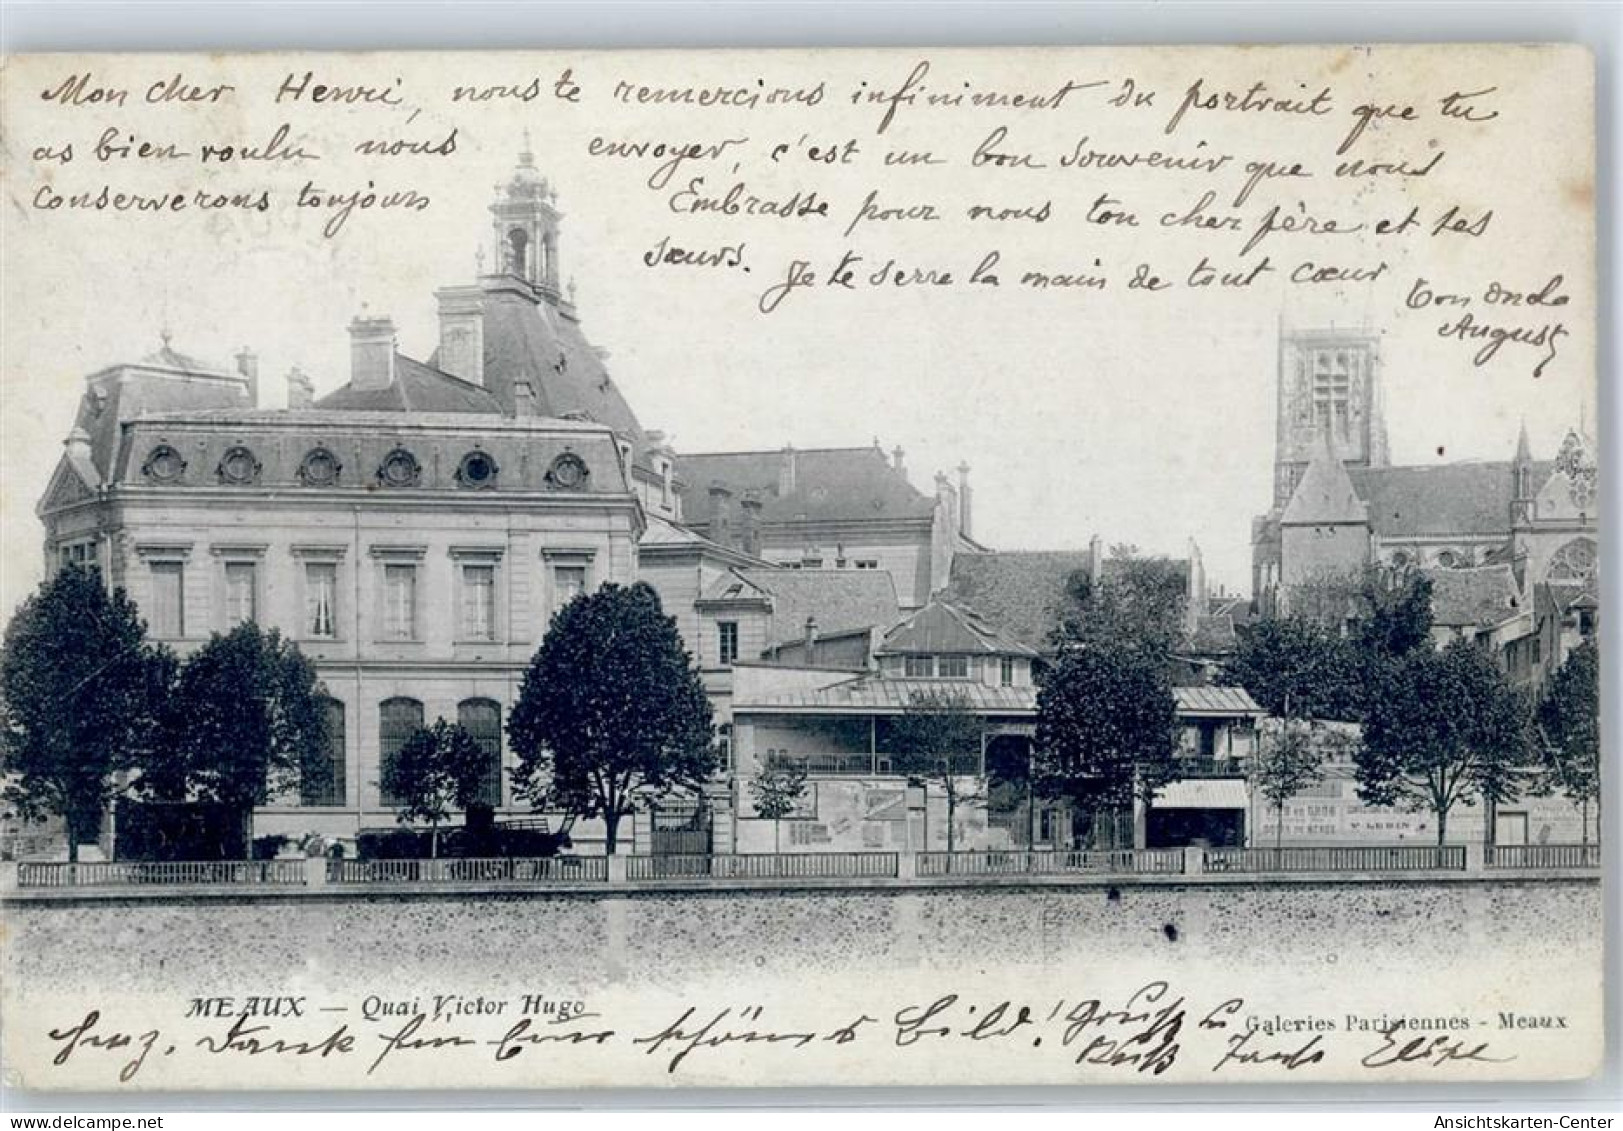 Mon cher Henri, nous te remercions infiniment du portrait que tu
as bien voulu nous envoyer, c'est un bon souvenir que nous
conserverons toujours Embrasse pour nous ton cher père et tes
sœurs. Je te serre la main de tout cœur
Ton oncle
August
MEAUX — Quai Victor Hugo
Galeries Parisiennes - Meaux
Herz. Dank für Euer schönes Bild! Gruß u
Kuß Tante Elise
Ansichtskarten-Center